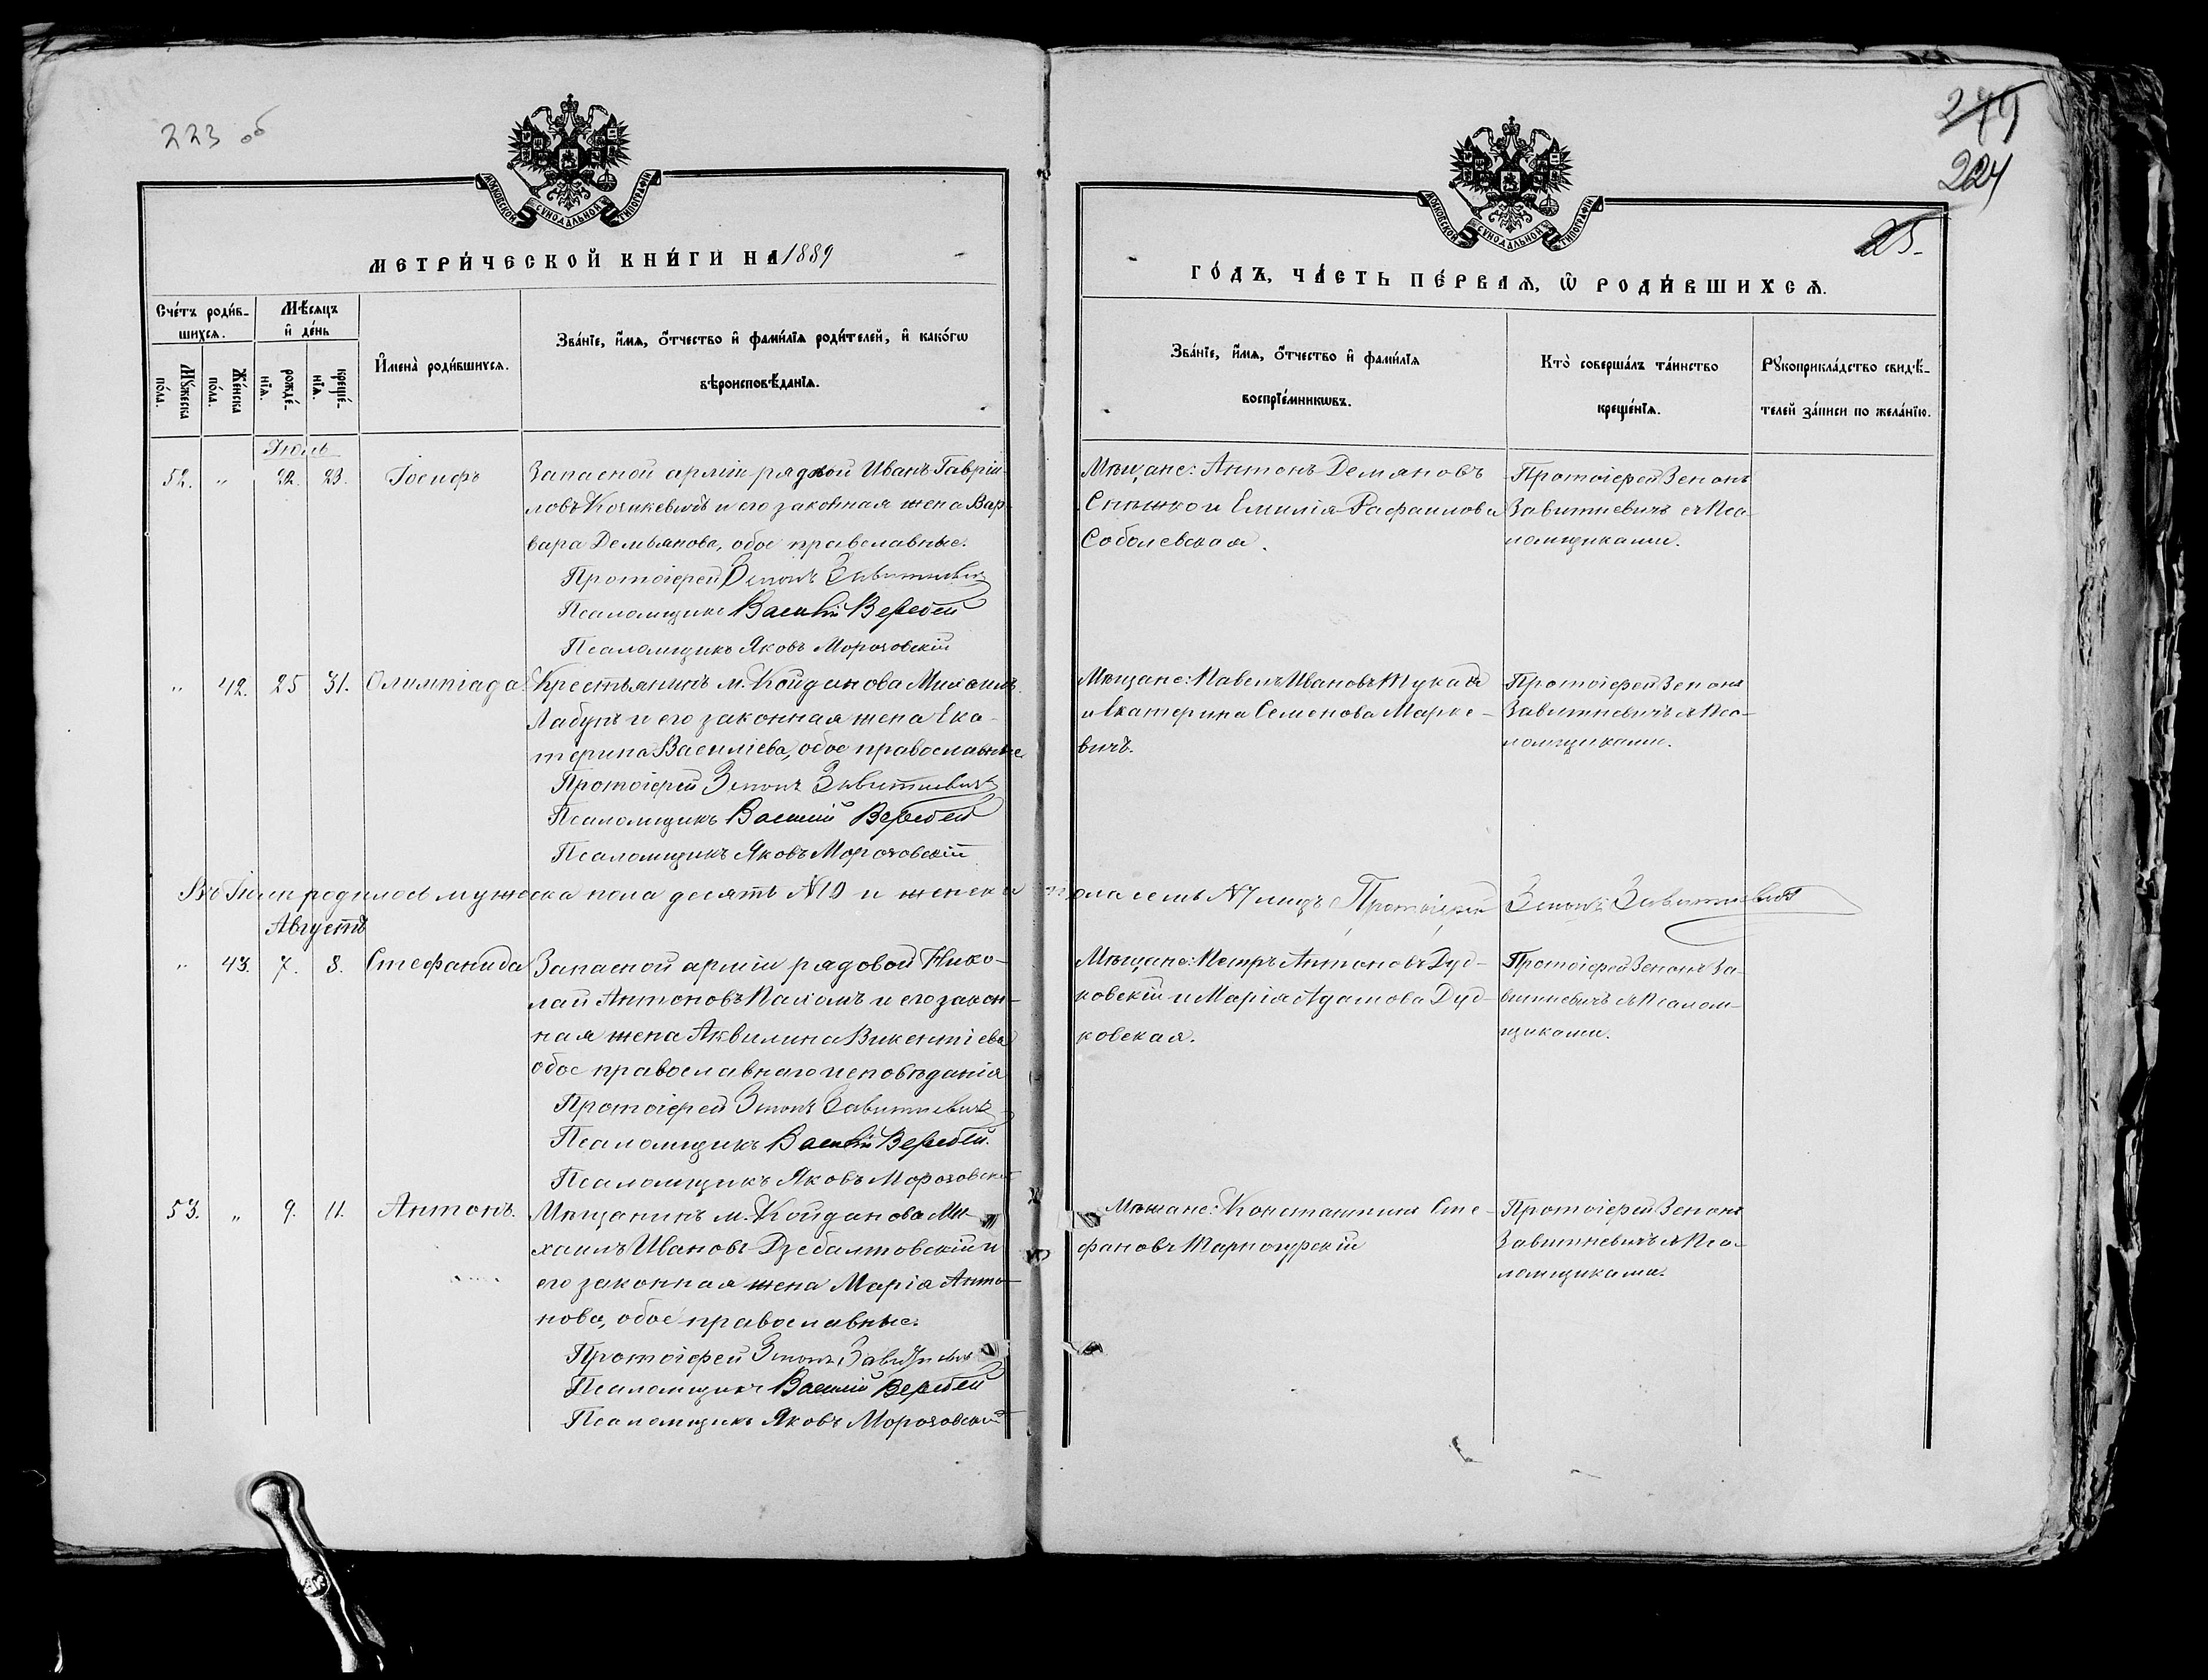 223 об
МОСКОВСКОЙ СУНОДАЛЬНОЙ ТИПОГРАФІИ
МЕТРИ́ЧЕСКОЙ КНИ́ГИ НА 1889
Сче́тъ роди́в-
шихсѧ.
Мѣ́сѧцъ
и҆ де́нь
Мꙋ́жеска
по́ла.
Же́нска
по́ла.
рожде́-
нїѧ.
креще́-
нїѧ.
И҆мена̀ роди́вшихсѧ.
Зва́нїе, и҆́мѧ, ѻ҆́тчество и҆ фами́лїѧ роди́телей, и҆ како́гѡ
вѣроисповѣ́данїѧ.
Іюль
52. „ 22. 23. Іосифъ Запасной арміи рядовой Иванъ Гаврiи-
ловъ и его законная жена Вар-
вара Демьянова, обое православные.
Протоіерей Зенонъ Завитневичъ
Псаломщикъ Василій Веребей
Псаломщикъ Яковъ Морозовскій
„ 42. 25 31. Олимпіада. Крестьянинъ м. Койданова Михаилъ
Лабунь и его законная жена Ека-
терина Василіева, обое православные
Протоіерей Зенонъ Завитневичъ
Псаломщикъ Василій Веребей
Псаломщикъ Яковъ Морозовскій
Въ Іюлѣ родилось мужеска пола десять №10 и женска
Августъ
„ 43. 7. 8. Стефанида Запасной арміи рядовой Нико-
лай Антоновъ и его закон-
ная жена Аквилина Викентіева
обое православнаго исповѣданія
Протоіерей Зенонъ Завитневичъ
Псаломщикъ Василій Веребей.
Псаломщикъ Яковъ Морозовскій
53. „ 9. 11. Антонъ. Мѣщанинъ м. Койданова Ми-
хаилъ Ивановъ Дзебалтовскій и
его законная жена Марія Анто-
нова, обое православные.
Протоіерей Зенонъ Завитневичъ
Псаломщикъ Василій Веребей
Псаломщикъ Яковъ Морозовскій
279
224
25.
МОСКОВСКОЙ СУНОДАЛЬНОЙ ТИПОГРАФІИ
ГО́ДЪ, ЧА́СТЬ ПЕ́РВАѦ, Ѡ҆ РОДИ́ВШИХСѦ.
Зва́нїе, и҆́мѧ, ѻ҆́тчество и҆ фами́лїѧ
воспрїе́мникѡвъ.
Кто̀ соверша́лъ та́инство
креще́нїѧ.
Рꙋкоприкла́дство свидѣ́-
телей за́писи по жела́нїю.
Мѣщане: Антонъ Демяновъ
и Емилія Рафаилова
Соболевская.
Протоіерей Зенонъ
Завитневичъ съ Пса-
ломщиками.
Мѣщане: Павелъ Ивановъ Жукъ
и Екатерина Семенова Марке-
вичъ.
Протоіерей Зенонъ
Завитневичъ съ Пса-
ломщиками.
пола семь №7 лицъ Протоіерей Зенонъ Завитневичъ
Мѣщане: Петръ Антоновъ Дуд-
ковскій и Марія Адамова Дуд-
ковская.
Протоіерей Зенонъ За-
витневичъ съ Псалом-
щиками.
Мѣщане: Константинъ Сте-
фановъ Жарногурскій
Протоіерей Зенонъ
Завитневичъ съ Пса-
ломщиками.